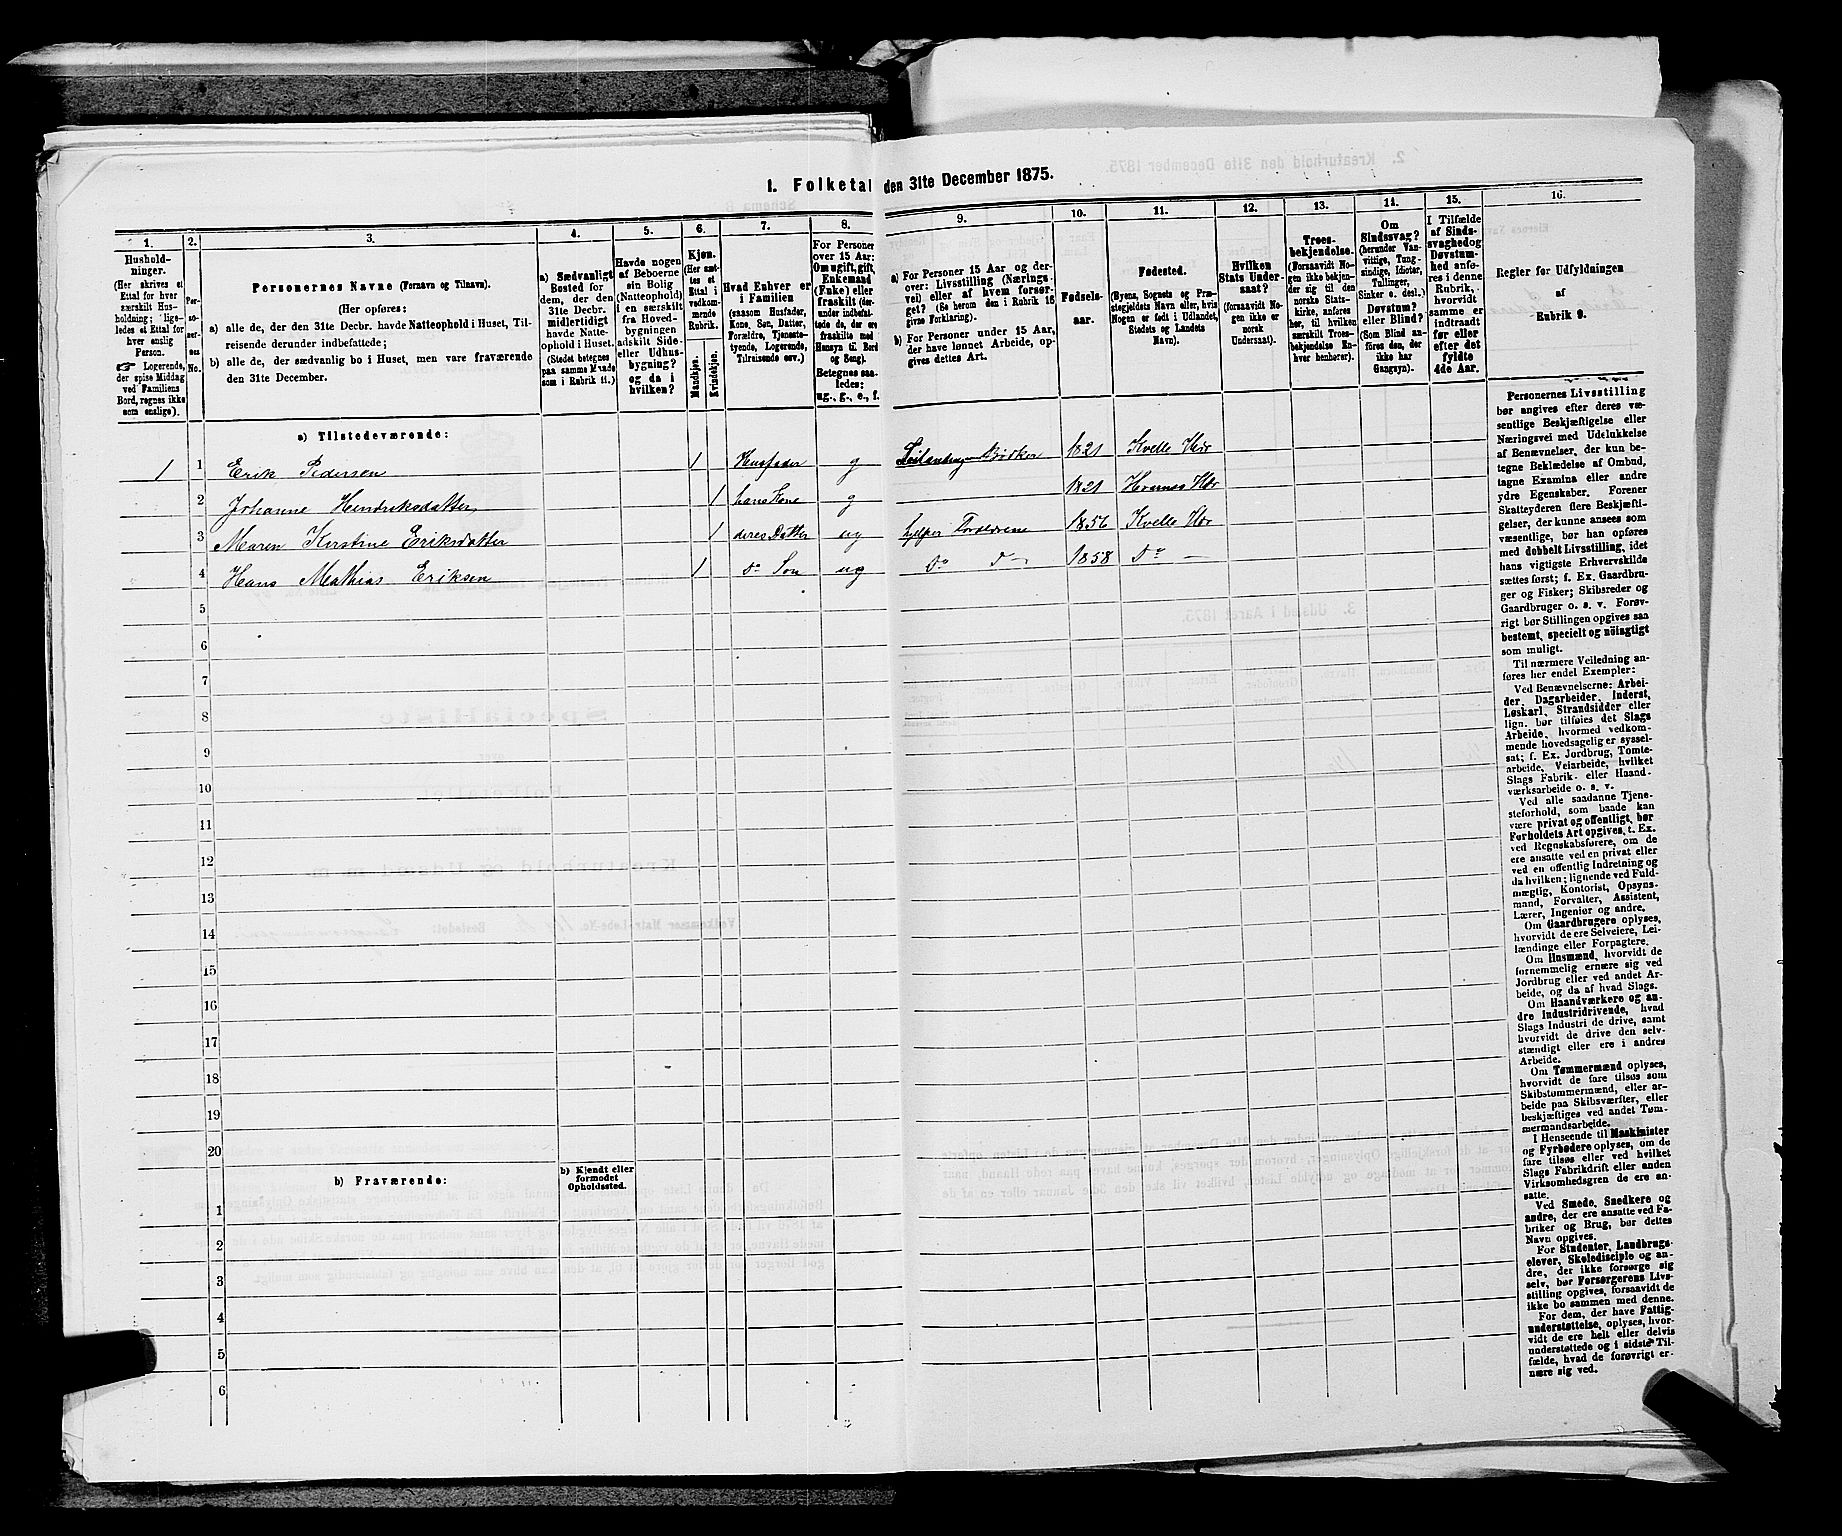 1. Folketal den 31te December 1875.
1.
Hushold-
ninger.
(Her skrives et
Ettal for hver
særskilt Hus-
holdning; lige-
ledes et Ettal for
hver enslig
Person.
☞ Logerende,
der spise Middag
ved Familiens
Bord, regnes ikke
som enslige).
2.
Per-
so-
ner-
nes
No.
3.
Personernes Navne (Fornavn og Tilnavn).
(Her opføres:
a) alle de, der den 31te Decbr. havde Natteophold i Huset, Til-
reisende derunder indbefattede;
b) alle de, der sædvanlig bo i Huset, men vare fraværende
den 31te December.
4.
a) Sædvanligt
Bosted for
dem, der den
31te Decbr.
midlertidigt
havde Natte-
ophold i Huset.
(Stedet betegnes
paa samme Maade
som i Rubrik 11.)
5.
Havde nogen
af Beboerne
sin Bolig
(Natteophold)
i en særskilt
fra Hoved-
bygningen
adskilt Side-
eller Udhus-
bygning?
og da i
hvilken?
6.
Kjøn.
(Her sæt-
tes et
Ettal i
vedkom-
mende
Rubrik.
Mandkjøn.
Kvindekjøn.
7.
Hvad Enhver er
i Familien
(saasom Husfader,
Kone, Søn, Datter,
Forældre, Tjeneste-
tyende, Logerende,
Tilreisende osv.)
8.
For Personer
over 15 Aar:
Om ugift, gift,
Enkemand
(Enke) eller
fraskilt (der-
under indbefat-
tede de, der ere
fraskilte med
Hensyn til Bord
og Seng).
Betegnes saa-
ledes:
ug., g., e., f.
9.
a) For Personer 15 Aar og der-
over: Livsstilling (Nærings-
vei) eller af hvem forsør-
get? (Se herom den i Rubrik 16
givne Forklaring).
b) For Personer under 15 Aar,
der have lønnet Arbeide, op-
gives dettes Art.
10.
Fødsels-
aar.
11.
Fødested.
(Byens, Sognets og Præ-
stegjeldets Navn eller, hvis
Nogen er født i Udlandet,
Stedets og Landets
Navn).
12.
Hvilken
Stats Under-
saat?
(foraavidt No-
gen ikke er
norsk
Undersaat).
13.
Troes-
bekjendelse.
(Forsaavidt No-
gen ikke bekjen-
der sig til den
norske Stats-
kirke, anføres
her, til hvilken
særskilt Troes-
bekjendelse En-
hver henhører).
14.
Om
Sindssvag?
(herunder Van-
vittige, Tung-
sindige, Idioter,
Tullinger,
Sinker o. desl.)
Døvstum?
eller Blind?
(Som Blind an-
føres den, der
ikke har
Gangsyn).
15.
I Tilfælde
af Sinds-
svaghed og
Døvstum-
hed anfø-
res i denne
Rubrik,
hvorvidt
samme er
indtraadt
før eller
efter det
fyldte
4de Aar.
16.
Regler for Udfyldningen
af
Rubrik 9.
a) Tilstedeværende:
1 1 Erik Pedersen 1 Husfader g Bødker 1821 Kvelle Hdr
2 Johanne Hendriksdatter 1 hans Kone g 1821 Hdr
3 Maren Kirstine Eriksdatter 1 deres Datter ug hjelper Forældrene 1856 Kvelle Hdr
4 Hans Mathias Eriksen 1 do Søn ug do do 1858 do
5
6
7
8
9
10
11
12
13
14
15
16
17
18
19
20
b) Fraværende:
b) Kjendt eller
formodet
Opholdssted.
1
2
3
4
5
6
Personernes Livsstilling
bør angives efter deres væ-
sentlige Beskjæftigelse eller
Næringsvei med Udelukkelse
af Benævnelser, der kun be-
tegne Beklædelse af Ombud,
tagne Examina eller andre
ydre Egenskaber. Forener
Skatteyderen flere Beskjæfti-
gelser, der kunne ansees som
væsentlige, bør han opføres
med dobbelt Livsstilling, idet
hans vigtigste Erhvervskilde
sættes først; f. Ex. Gaardbru-
ger og Fisker; Skibsreder og
Gaardbruger o. s. v. Forøv-
rigt bør Stillingen opgives saa
bestemt, specielt og nöiagtigt
som muligt.
Til nærmere Veiledning an-
føres her endel Exempler:
Ved Benævnelserne: Arbei-
der, Dagarbeider, Inderst,
Løskarl, Strandsidder eller
lign. bør tilføies det Slags
Arbeide, hvormed vedkom-
mende hovedsagelig er syssel-
sat; f. Ex. Jordbrug, Tomte-
arbeide, Veiarbeide, hvilket
Slags Fabrik- eller Haand-
værksarbeide o. s. v.
Ved alle saadanne Tjene-
steforhold, som baade kan
være privat og offentligt, bør
Forholdets Art opgives, t. Ex.
ved Regnskabsførere, om de
ere ansatte ved en privat eller
ved en offentlig Indretning og
da hvilken; lignende ved Fuld-
mægtig, Kontorist, Opsyns-
mand, Forvalter, Assistent,
Lærer, Ingeniør og andre.
Om Gaardbrugere oplyses,
hvorvidt de ere Selveiere, Lei-
lændinge eller Forpagtere.
Om Husmænd, hvorvidt de
fornemmelig ernære sig ved
Jordbrug eller ved andet Ar-
beide, og da af hvad Slags.
Om Haandværkere og an-
dre Industridrivende, hvad
Slags Industri de drive, samt
hvorvidt de drive den selv-
stændigt eller ere i andres
Arbeide.
Om Tømmermænd oplyses,
hvorvidt de fare tilsøs som
Skibstømmermænd, eller ar-
beide paa Skibsværfter, eller
beskjæftiges ved andet Tøm-
mermandsarbeide.
I Henseende til Maskinister
og Fyrbødere oplyses, om de
fare tilsøs eller ved hvilket
Slags Fabrikdrift eller anden
Virksomhedsgren de ere an-
satte.
Ved Smede, Snedkere og
andre, der ere ansatte ved Fa-
briker og Brug, bør dettes
Navn opgives.
For Studenter, Landbrugs-
elever, Skoledisciple og an-
dre, der ikke forsørge sig
selv, bør Forsørgerens Livs-
stilling opgives, forsaavidt de
ikke bo sammen med denne.
For dem, der have Fattig-
understøttelse, oplyses, hvor-
vidt de ere helt eller delvis
understøttede og i sidste Til-
fælde, hvad de forøvrigt er-
nære sig ved.